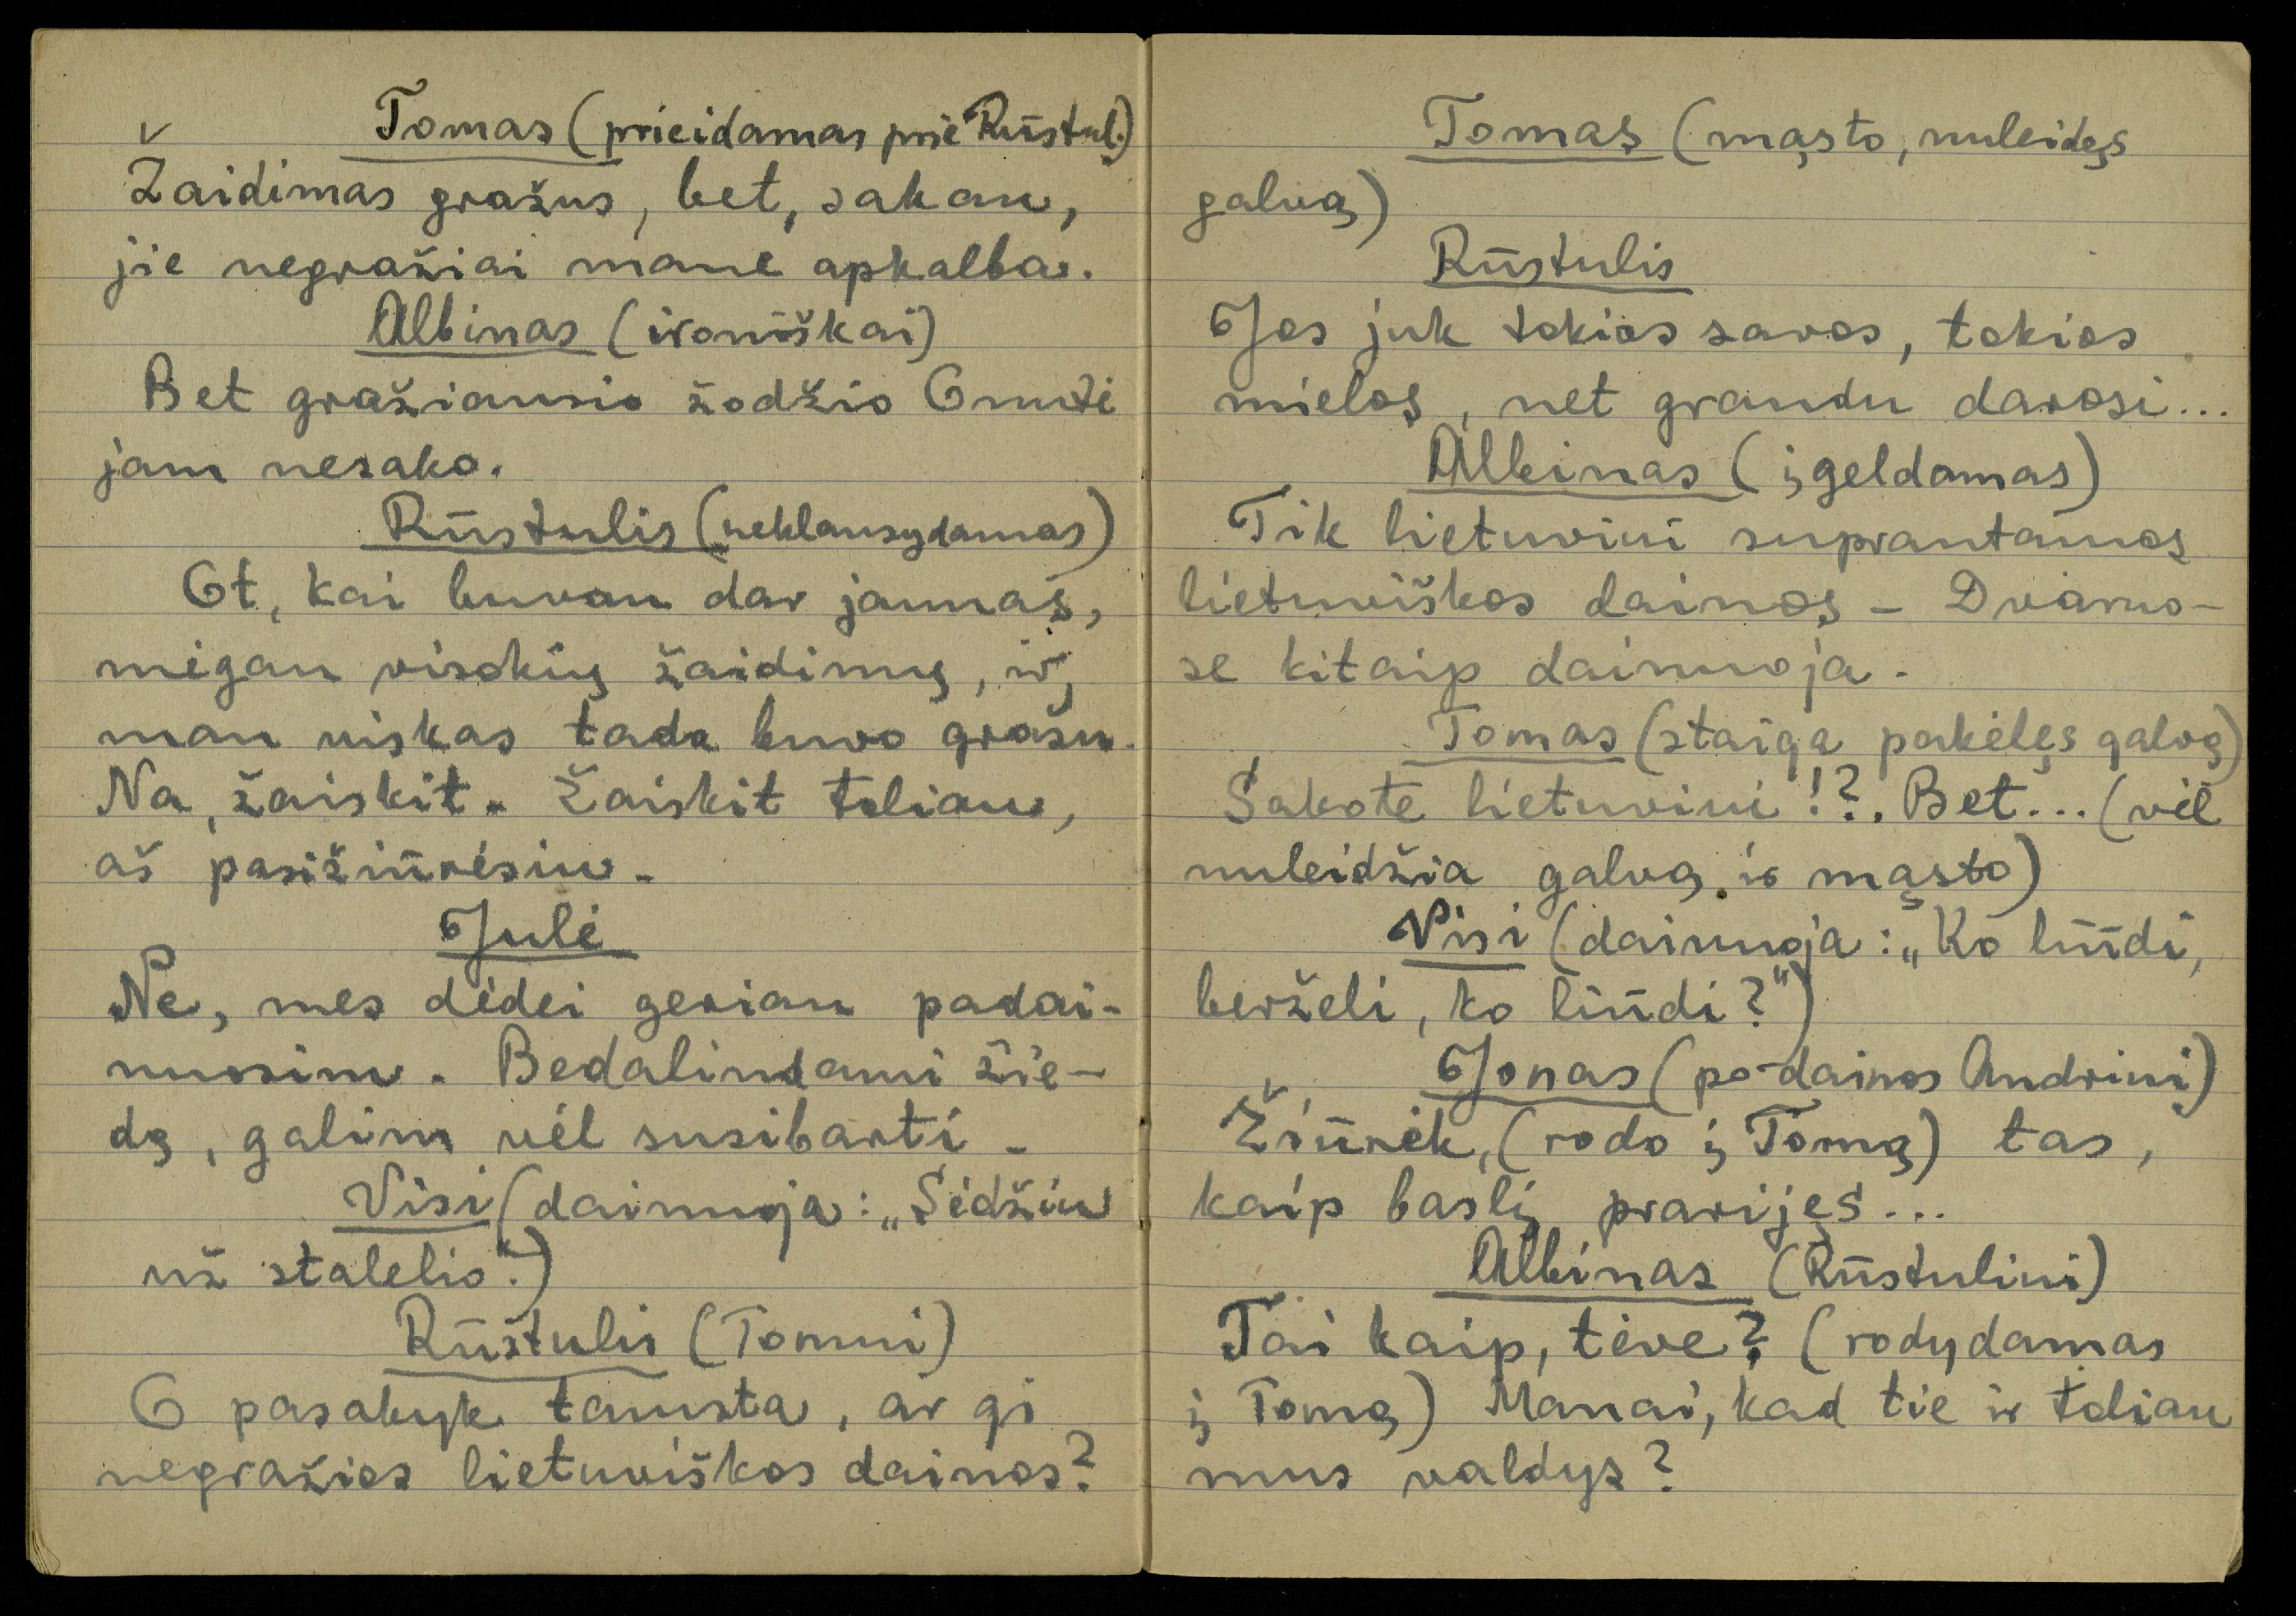 Tomas (prieidamas prie Rūstul.)
Žaidimas gražus, bet, sakau,
jie negražiai mane apkalba.
Albinas (ironiškai)
Bet gražiausio žodžio Onutė
jam nesako.
Rūstulis (neklausydamas)
Ot, kai buvau dar jaunas,
mėgau visokių žaidimų, ir,
man viskas tada buvo gražu.
Na, žaiskit. Žaiskit toliau,
aš pasižiūrėsiu.
Julė
Ne, mes dėdei geriau padai-
nuosim. Bedalindami žie-
dą, galim vėl susibarti.
Visi (dainuoja: „Sėdžiu
už stalelio“.)
Rūstulis (Tomui)
O pasakyk tamsta, ar gi
negražios lietuviškos dainos?
Tomas (mąsto, nuleidęs
galvą)
Rūstulis
Jos juk tokios savos, tokios
mielos, net graudu darosi...
Albinas (įgeldamas)
Tik lietuviui suprantamos
lietuviškos dainos - Dvaruo-
se kitaip dainuoja.
Tomas (staiga pakėlęs galvą)
Sakote lietuviui!?. Bet... (vėl
nuleidžia galvą ir mąsto)
Visi (dainuoja: „Ko liūdi,
berželi, ko liūdi?“)
Jonas (po dainos Andriui)
Žiūrėk, (rodo į Tomą) tas,
kaip baslį prarijęs...
Albinas (Rūstuliui)
Tai kaip, tėve? (rodydamas
į Tomą) Manai, kad tie ir toliau
mus valdys?